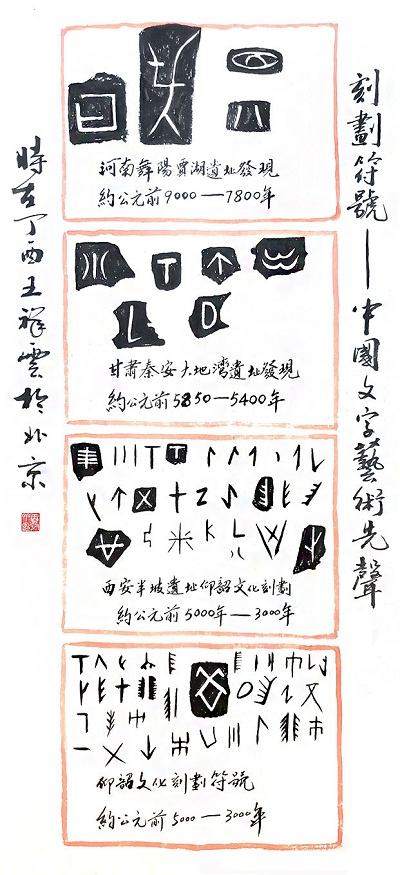 刻劃符號——中國文字藝術先聲
河南舞陽賈湖遺址發現
約公元前9000——7800年
甘肅秦安大地灣遺址發現
約公元前5850—5400年
西安半坡遺址仰韶文化刻劃
約公元前5000年——3000年
仰韶文化刻劃符號
約公元前5000——3000年
時在丁酉王祥雲於北京